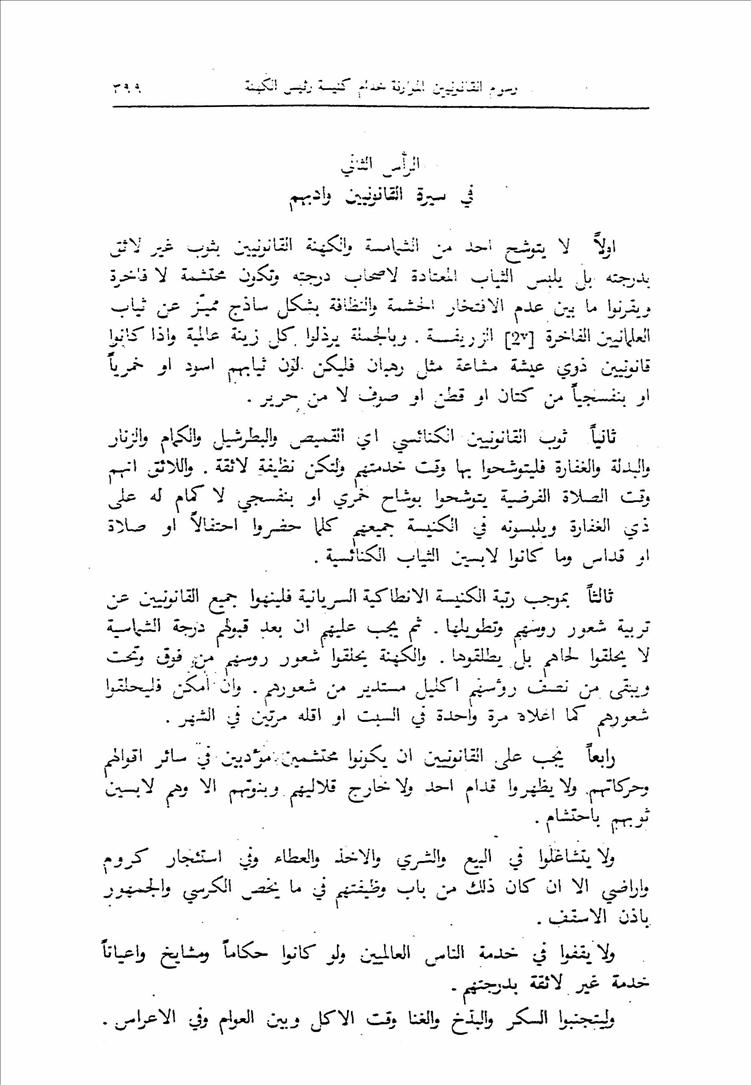 رسوم القانونيين الموارنة خدام كنيسة رئيس الكهنة ٣٩٩
الرأس الثاني
في سيرة القانونيين وادبهم
اولاً لا يتوشح احد من الشمامسة والكهنة القانونيين بثوب غير لائق
بدرجته بل يلبس الثياب المعتادة لاصحاب درجته وتكون محتشمة لا فاخرة
ويقرنوا ما بين عدم الافتخار الحشمة والنظافة بشكل ساذج مميّز عن ثياب
العلمانيين الفاخرة [2v] الزريفسة . وبالجملة يرذلوا كل زينة عالمية واذا كانوا
قانونيين ذوي عيشة مشاعة مثل رهبان فليكن لون ثيابهم اسود او خمرياً
او بنفسجياً من كتان او قطن او صوف لا من حرير .
ثانياً ثوب القانونيين الكنائسي اي القميص والبطرشيل والكمام والزنار
والبدلة والغفارة فليتوشحوا بها وقت خدمتهم ولتكن نظيفة لائقة . واللائق انهم
وقت الصلاة الفرضية يتوشحوا بوشاح خمري او بنفسجي لا كمام له على
ذي الغفارة ويلبسونه في الكنيسة جميعهم كلما حضروا احتفالاً او صلاة
او قداس وما كانوا لابسين الثياب الكنائسية .
ثالثاً بموجب رتبة الكنيسة الانطاكية السريانية فلينهوا جميع القانونيين عن
تربية شعور روسهم وتطويلها . ثم يجب عليهم ان بعد قبولهم درجة الشماسية
لا يحلقوا لحاهم بل يطلقوها . والكهنة يحلقوا شعور روسهم من فوق وتحت
ويبقى من نصف رؤسهم اكليل مستدير من شعورهم . وان امكن فليحلقوا
شعورهم كما اعلاه مرة واحدة في السبت او اقله مرتين في الشهر .
رابعاً يجب على القانونيين ان يكونوا محتشمين مؤديين في سائر اقوالهم
وحركاتهم ولا يظهروا قدام احد ولا خارج قلاليهم وبنوتهم الا وهم لابسين
ثوبهم باحتشام .
ولا يتشاغلوا في البيع والشري والاخذ والعطاء وفي استئجار كروم
واراضي الا ان كان ذلك من باب وظيفتهم في ما يخص الكرسي والجمهور
باذن الاسقف .
ولا يقفوا في خدمة الناس العالميين ولو كانوا حكاماً ومشايخ واعياناً
خدمة غير لائقة بدرجتهم .
وليتجنبوا السكر والبذخ والغنا وقت الاكل وبين العوام وفي الاعراس .